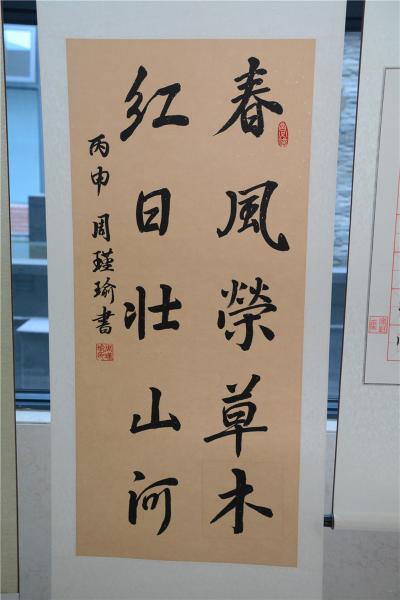 春風榮草木
紅日壯山河
丙申 周瑾瑜書